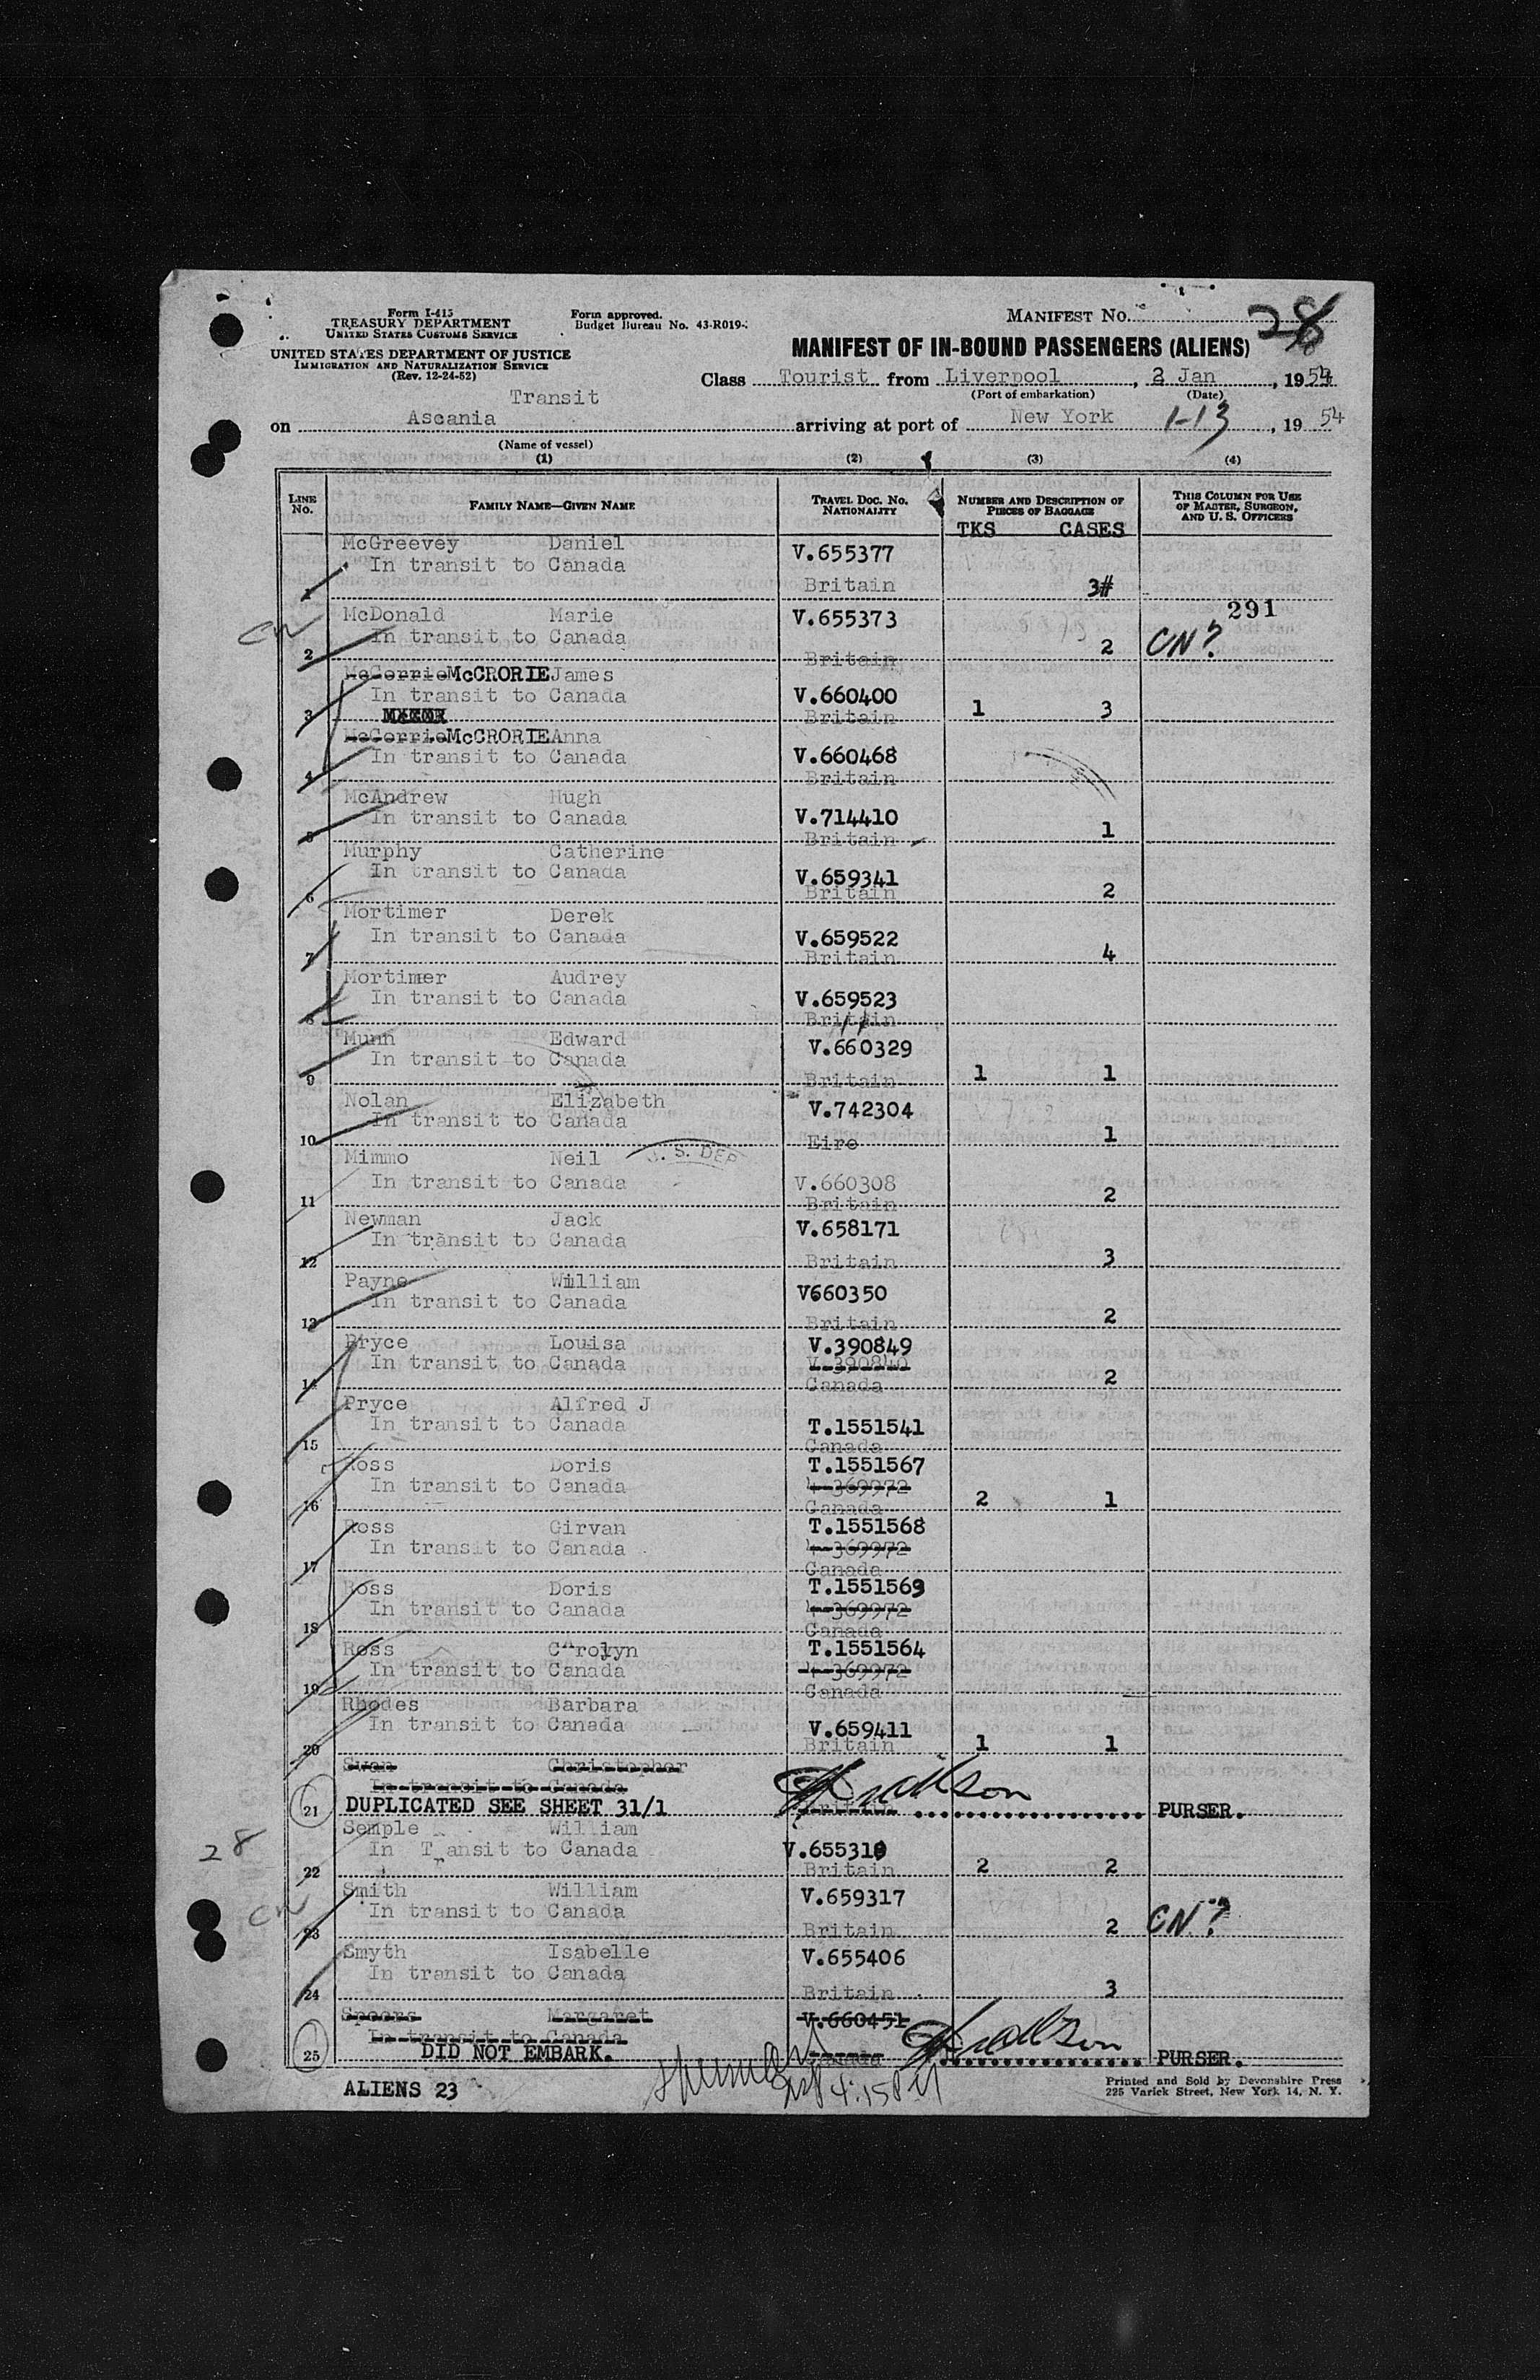 Form I-415
TREASURY DEPARTMENT
UNITED STATES CUSTOMS SERVICE
Form approved.
Budget Bureau No. 43-R019-
MANIFEST NO. 28
UNITED STATES DEPARTMENT OF JUSTICE
IMMIGRATION AND NATURALIZATION SERVICE
(Rev. 12-24-52)
MANIFEST OF IN-BOUND PASSENGERS (ALIENS)
Class Tourist from Liverpool, 2 Jan, 1954
(Port of embarkation) (Date)
Transit
on Ascania arriving at port of New York 1-13, 1954
(Name of vessel)
(1) (2) (3) (4)
LINE NO. FAMILY NAME—GIVEN NAME TRAVEL DOC. NO. NATIONALITY NUMBER AND DESCRIPTION OF PIECES OF BAGGAGE THIS COLUMN FOR USE OF MASTER, SURGEON, AND U. S. OFFICERS
TKS CASES
McGreevey Daniel V.655377
In transit to Canada
1 Britain 3#
291
McDonald Marie V.655373
CN In transit to Canada
2 Britain 2 CN?
McCorrie McCRORIE James
In transit to Canada V.660400
3 Britain 1 3
McCorrie McCRORIE Anna
In transit to Canada V.660468
4 Britain
McAndrew Hugh
In transit to Canada V.714410
5 Britain 1
Murphy Catherine
In transit to Canada V.659341
6 Britain 2
Mortimer Derek
In transit to Canada V.659522
7 Britain 4
Mortimer Audrey
In transit to Canada V.659523
8 Britain
Munn Edward V.660329
In transit to Canada
9 Britain 1 1
Nolan Elizabeth V.742304
In transit to Canada
10 Eire 1
U. S. DEP
Mimmo Neil
In transit to Canada V.660308
11 Britain 2
Newman Jack V.658171
In transit to Canada
12 Britain 3
Payne William V660350
In transit to Canada
13 Britain 2
Pryce Louisa V.390849
In transit to Canada V.390840
14 Canada 2
Pryce Alfred J
In transit to Canada T.1551541
15 Canada
Ross Doris T.1551567
In transit to Canada 4-369972
16 Canada 2 1
Ross Girvan T.1551568
In transit to Canada 4-369972
17 Canada
Ross Doris T.1551569
In transit to Canada 4-369972
18 Canada
Ross Carolyn T.1551564
In transit to Canada 4-369972
19 Canada
Rhodes Barbara
In transit to Canada V.659411
20 Britain 1 1
Swan Christopher
In transit to Canada
21 DUPLICATED SEE SHEET 31/1 Britain PURSER.
Semple William
28 In Transit to Canada V.655318
22 Britain 2 2
Smith William V.659317
CN In transit to Canada
23 Britain 2 CN?
Smyth Isabelle V.655406
In transit to Canada
24 Britain 3
Speers Margaret V.660451
In transit to Canada
25 DID NOT EMBARK. Canada PURSER.
ALIENS 23
4:15 PM
Printed and Sold by Devonshire Press
225 Varick Street, New York 14, N. Y.